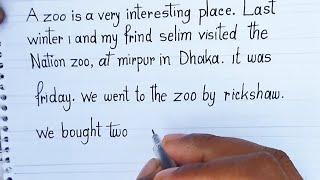 A zoo is a very interesting place. Last
winter i and my frind selim visited the
Nation zoo, at mirpur in Dhaka. it was
friday. we went to the zoo by rickshaw.
we bought two